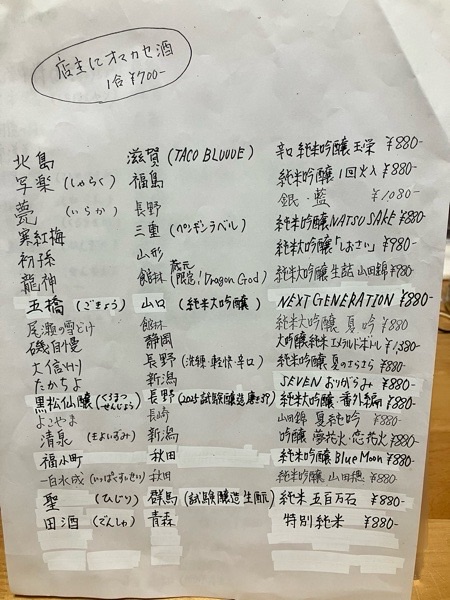 店主にオマカセ酒
1合 ¥700-
北島 滋賀 (TACO BLUUUE) 辛口 純米吟醸 玉栄 ¥880-
写楽 (しゃらく) 福島 純米吟醸 1回火入 ¥880-
甍 (いらか) 長野 銀・藍 ¥1080-
寒紅梅 三重 (ペンギンラベル) 純米吟醸 NATSU SAKE ¥880-
初孫 山形 純米大吟醸「しおさい」 ¥980-
龍神 館林 蔵元限定! Dragon God) 純米大吟醸 生詰 山田錦 ¥880-
五橋 (ごきょう) 山口 (純米大吟醸) NEXT GENERATION ¥880-
尾瀬の雪どけ 館林 純米大吟醸 夏吟 ¥880-
磯自慢 静岡 大吟醸純米 エメラルドボトル ¥1,380-
大信州 長野 (洗練・軽快・辛口) 純米吟醸 夏のさらさら ¥880-
たかちよ 新潟 SEVEN おりがらみ ¥880-
黒松仙醸 (くろまつせんじょう) 長野 (2025試験醸造 ) 純米大吟醸・番外編 ¥880-
よこやま 長崎 山田錦 夏純吟 ¥880-
清泉 (きよいずみ) 新潟 吟醸 夢花火・恋花火 ¥880-
福小町 秋田 純米吟醸 Blue Moon ¥880-
一白水成 (いっぱくすいせい) 秋田 純米吟醸 山田穂 ¥880-
聖 (ひじり) 群馬 (試験醸造 生酛) 純米 五百万石 ¥880-
田酒 (でんしゅ) 青森 特別純米 ¥880-